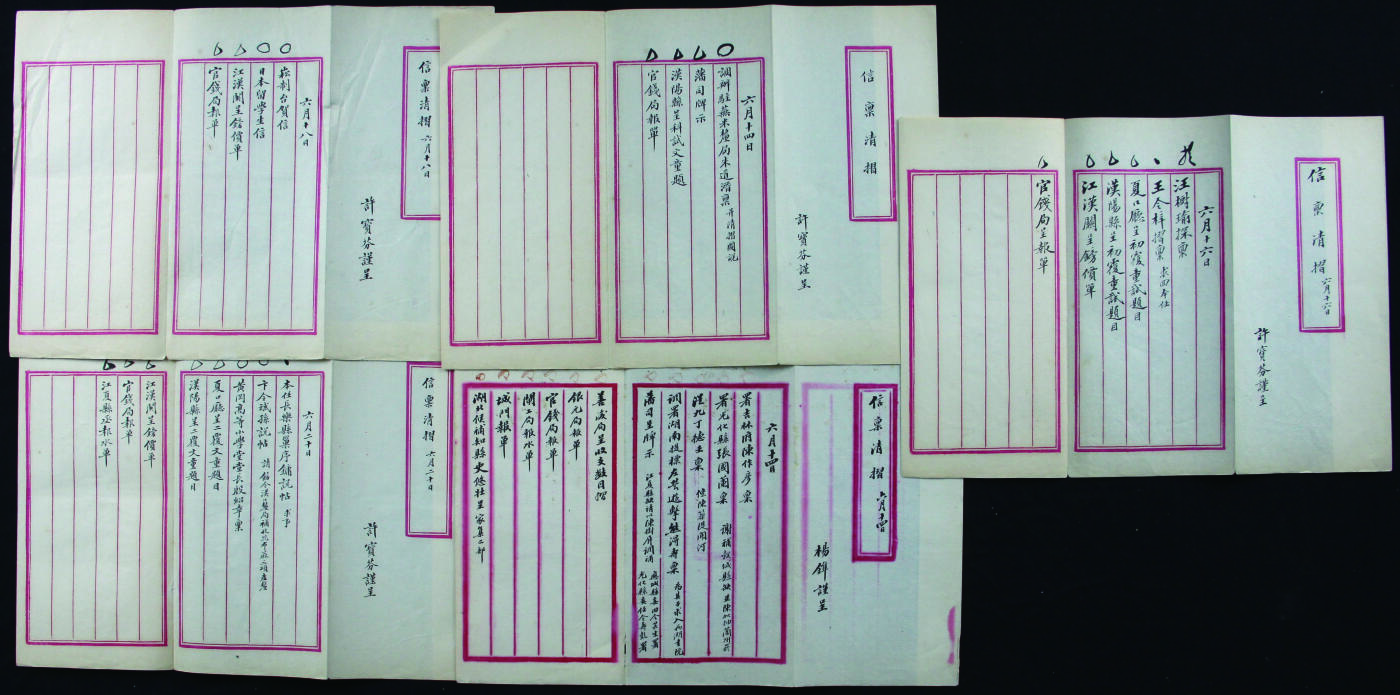 信稟清摺 六月十八日
許寶芬謹呈
六月十八日
崧制台賀信
日本留學生信
江漢關呈鎊價單
官錢局報單
信稟清摺
許寶芬謹呈
六月十四日
調辦駐蕪米釐局朱道滋稟 并清摺圖說
藩司牌示
漢陽縣呈科試文童題
官錢局報單
信稟清摺 六月十六日
許寶芬謹呈
六月十六日
汪樹瑜探稟
王令梓摺稟 求回本任
夏口廳呈初覆童試題目
漢陽縣呈初覆童試題目
江漢關呈鎊價單
官錢局呈報單
信稟清摺 六月二十日
許寶芬謹呈
六月二十日
本任長樂縣粟序鏞說帖 求事
卞令玳孫說帖
黃岡高等小學堂堂長殷紹章稟
夏口廳呈二覆文童題目
漢陽縣呈二覆文童題目
江漢關呈鎊價單
官錢局報單
江夏縣丞報水單
信稟清摺 六月十四日
楊鋒謹呈
六月十四日
署吉林府陳作彥稟
署光化縣張國蘭稟
調署湖南提標左營遊擊熊得壽稟
藩司呈牌示
善後局呈收支數目摺
銀元局報單
官錢局報單
關工局報水單
城門報單
湖北候補知縣史悠壯呈家集二部